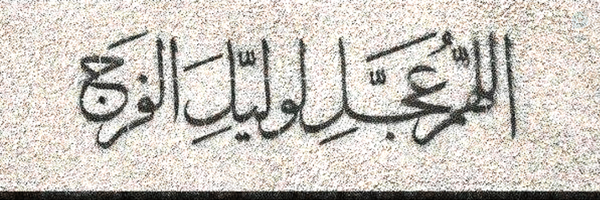 اللهمّ عُجَّلِ لوليّلِ الفرج